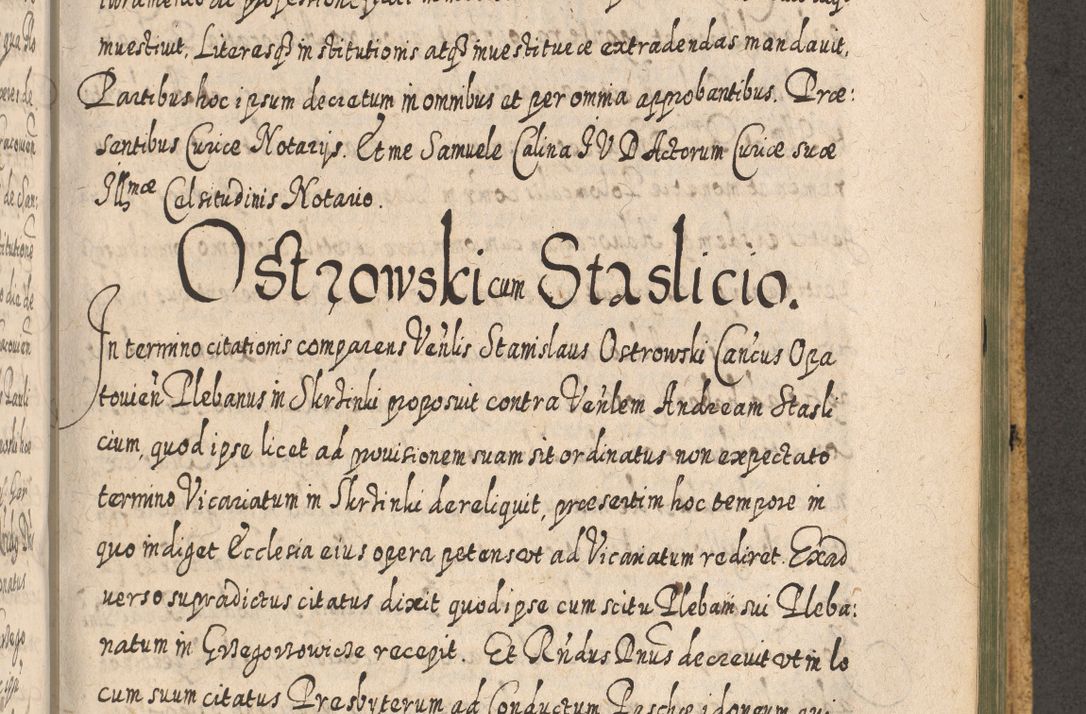 inuestiuit, Literasq3 institutionis atq3 inuestituræ extradendas mandauit.
Partibus hoc ipsum decretum in omnibus et per omnia approbantibus. Præ:
sentibus Curiæ Notarijs. Et me Samuele Calina J V D Actorum Curiæ suæ
Illmæ Celsitudinis Notario.
Ostrowski cum Staslicio.
In termino citationis comparens Venlis Stanislaus Ostrowski Cancus Opa
touien Plebanus in Skrzinki proposuit contra Venlem Andream Stasli
cium, quod ipse licet ad prouisionem suam sit ordinatus non expectato
termino Vicariatum in Skrzinki dereliquit, præsertim hoc tempore in
quo indiget Ecclesia eius opera petens vt ad Vicariatum rediret. Exad
uerso supradictus citatus dixit quod ipse cum scitu Plebani sui Pleba:
natum in Grzegorzowicze recepit. Et Rndus Dnus decreuit vt in lo
cum suum citatus Presbyterum ad Conductum Paschæ idoneum qui